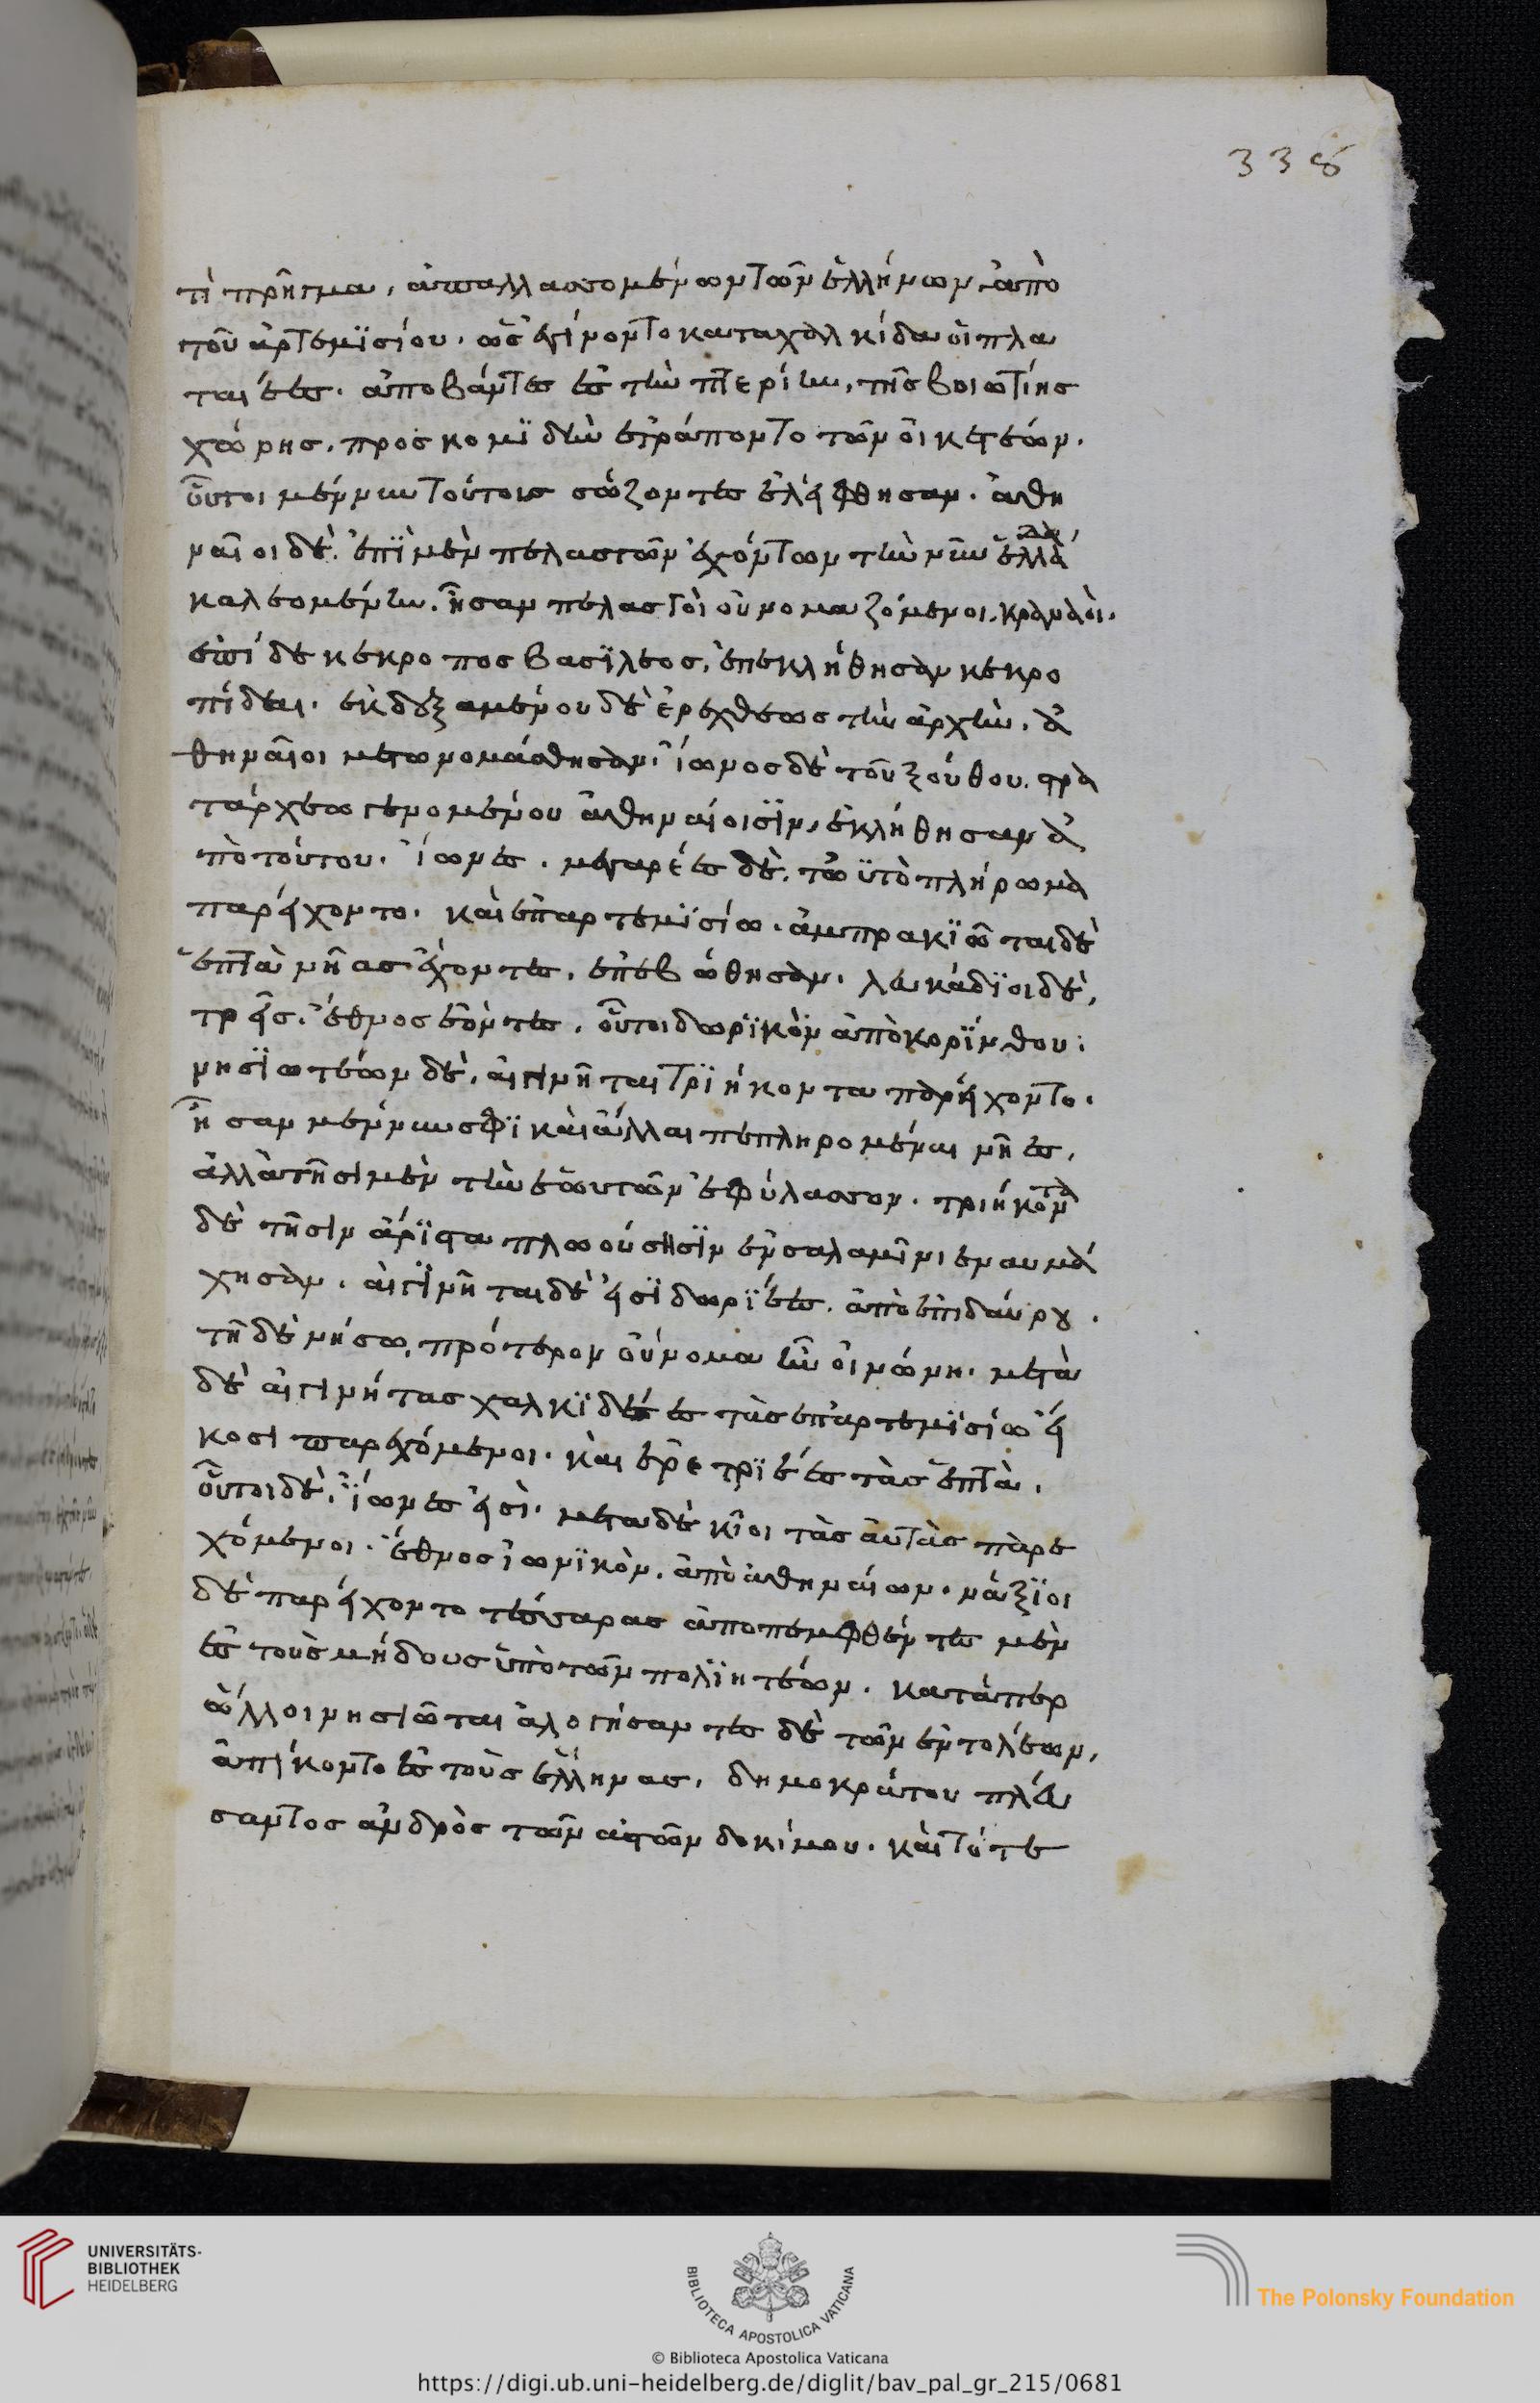 338
τὶ πρῆγμα, ἀπαλλασσομένων τῶν ἑλλήνων ἀπὸ
τοῦ ἀρτεμϊσίου. ὡς ἐγίνοντο κατα χαλκίδα οἱ πλα
ταιέες. ἀποβάντες ἐς τὴν περίην, τῆς βοιωτίης
χώρης, προς κομϊδὴν ἐτράποντο τῶν οἰκετέων.
οὗτοι μέν νυν τούτους σώζοντες ἐλείφθησαν. ἀθη
ναῖοι δὲ. ἐπῒ μὲν πελασγῶν ἐχόντων τὴν νῦν ἑλλάδα
καλεομένην. ἦσαν πελασγοὶ οὐνομαζόμενοι. κραναοὶ.
ἐπὶ δε κέκροπος βασϊλεος, ἐπεκλήθησαν κεκρο
πίδαι. ἐκδεξαμένου δὲ ἐρεχθεως τὴν ἀρχὴν. ἀ
θηναῖοι μετωνομάσθησαν. ἴωνος δὲ τοῦ ξούθου. στρα
τάρχεω γενομένου ἀθηναίοισϊν, ἐκλήθησαν ἀ
πὸ τούτου. ἴωνες. μεγαρέες δὲ. τὠυτὸ πλήρωμα
παρείχοντο. καὶ ἐπ αρτεμϊσίω. ἀμπρακϊῶται δὲ
ἑπτὰ νῆας ἔχοντες, ἐπεβώθησαν. λευκάδϊοι δὲ,
τρεῖς. ἔθνος ἐόντες, οὗτοι δωρϊκὸν ἀπὸ κορίνθου.
νησϊωτέων δὲ, αἰγινῆται τρϊήκοντα παρείχοντο.
ἦσαν μέν νυν σφϊ καὶ ἄλλαι πεπληρομέναι νῆες,
ἀλλὰ τῆσι μὲν τὴν ἑωυτῶν ἐφύλασσον. τριήκοντα
δὲ τῆσιν ἄρϊστα πλωούσησϊν ἐν σαλαμῖνι εναυμά
χησαν. αἰγϊνῆται δὲ εἰσϊ δωρϊέες. ἀπὸ ἐπιδαύρου.
τῆ δὲ νήσω, πρότερον οὔνομα ἦν οἰνώνη. μετὰ
δὲ αἰγινήτας χαλκϊδέες τὰς ἐπ αρτεμϊσίω εἴ
κοσι παρεχόμενοι. καὶ ἐρετρϊέες τὰς ἑπτὰ.
οὗτοι δὲ, ἴωνες εἰσὶ. μετα δὲ κῖοι τὰς αὐτὰς παρε
χόμενοι. ἔθνος ἰωνϊκὸν. ἀπὸ ἀθηναίων. νάξϊοι
δὲ παρείχοντο τέσσαρας ἀποπεμφθέντες μὲν
ἐς τοὺς μήδους ὑπὸ τῶν πολϊητέων. κατάπερ
ὧλλοι νησιῶται ἀλογήσαντες δὲ τῶν ἐντολέων,
ἀπίκοντο ἐς τοὺς ἕλληνας, δημοκρίτου σπεύ
σαντος ἀνδρὸς τῶν ἀστῶν δοκίμου. καὶ τότε
UNIVERSITÄTS-
BIBLIOTHEK
HEIDELBERG
BIBLIOTECA APOSTOLICA VATICANA
The Polonsky Foundation
© Biblioteca Apostolica Vaticana
https://digi.ub.uni-heidelberg.de/diglit/bav_pal_gr_215/0681